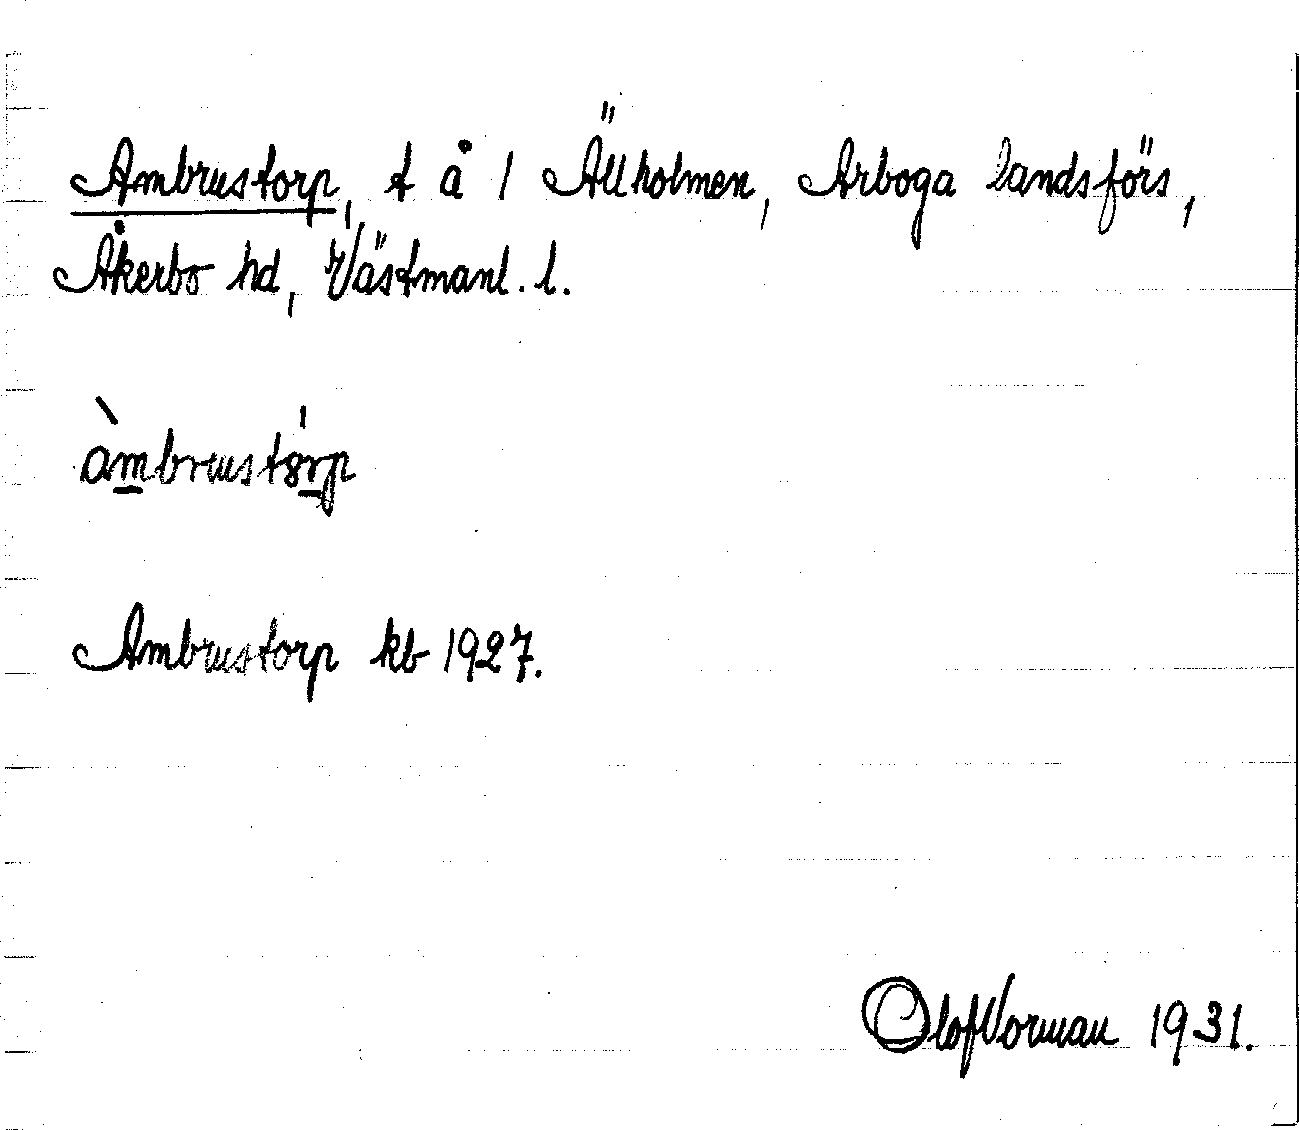 Ambrustorp, t å 1 Ällholmen, Arboga landsförs,
Åkerbo hd, Västmanl. l.
àmbrustȯrp
Ambrustorp kb 1927.
Olof Vorman 1931.